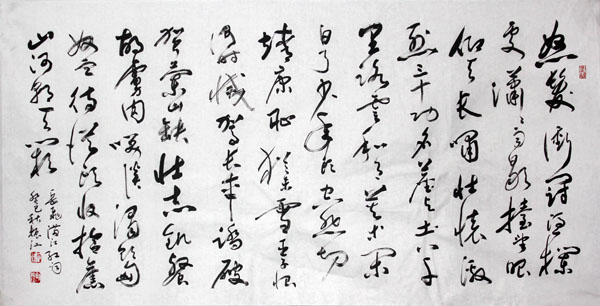 怒髮衝冠憑欄
處瀟瀟雨歇擡望眼
仰天長嘯壯懷激
烈三十功名塵与土八千
里路雲和月莫等閑
白了少年頭空悲切
靖康恥猶未雪臣子恨
何時滅駕長車踏破
賀蘭山缺壯志飢餐
胡虜肉笑談渴飲匈
奴血待從頭收拾舊
山河朝天闕
岳飛滿江紅詞
癸巳秋江